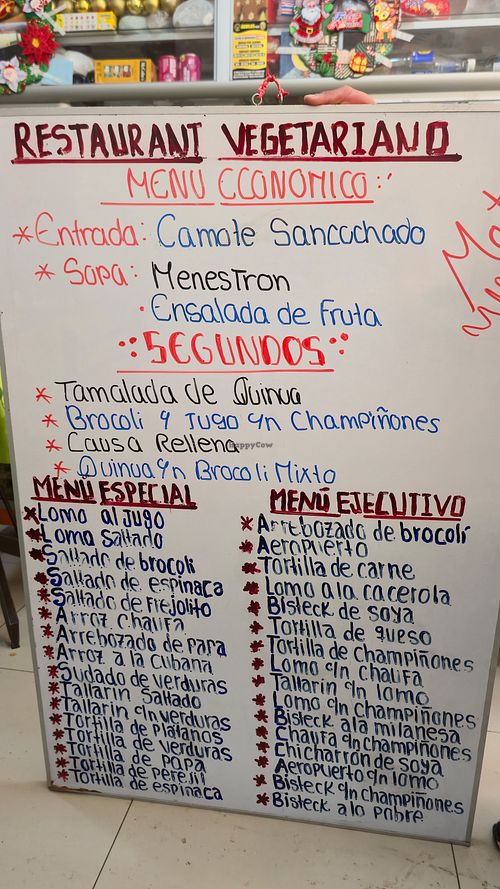 RESTAURANT VEGETARIANO
MENU ECONOMICO
* Entrada: Camote Sancochado
* Sopa: Menestron
· Ensalada de Fruta
SEGUNDOS
* Tamalada de Quinua
* Brocoli y Jugo qn Champiñones
* Causa Rellena
* Quinua qn Brocoli Mixto
MENÚ ESPECIAL
* Lomo al jugo
* Lomo Saltado
* Saltado de brocoli
* Saltado de espinaca
* Saltado de Frejolito
* Arroz Chaufa
* Arrebozado de papa
* Arroz a la Cubana
* Sudado de verduras
* Tallarin Saltado
* Tallarin qn verduras
* Tortilla de Platanos
* Tortilla de verduras
* Tortilla de papa
* Tortilla de perejil
* Tortilla de espinaca
MENÚ EJECUTIVO
* Arrebozado de brocolí
* Aeropuerto
* Tortilla de carne
* Lomo a la cacerola
* Bisteck de soya
* Tortilla de queso
* Tortilla de Champiñones
* Lomo qn Chaufa
* Tallarin qn lomo
* Lomo qn Champiñones
* Bisteck a la milanesa
* Chaufa qn Champiñones
* Chicharron de soya
* Aeropuerto qn lomo
* Bisteck qn Champiñones
* Bisteck a lo pobre
HappyCow